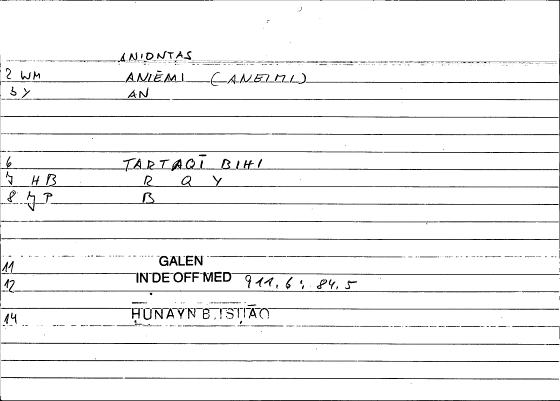 ANIONTAS
2 WM ANIĒMI (ANEIMI)
3 Y AN
6 TARTAQĪ BIHI
7 HB R Q Y
8 P B
11 GALEN
12 IN DE OFF MED 911.6 : 84.5
14 ḤUNAYN B. ISḤĀQ